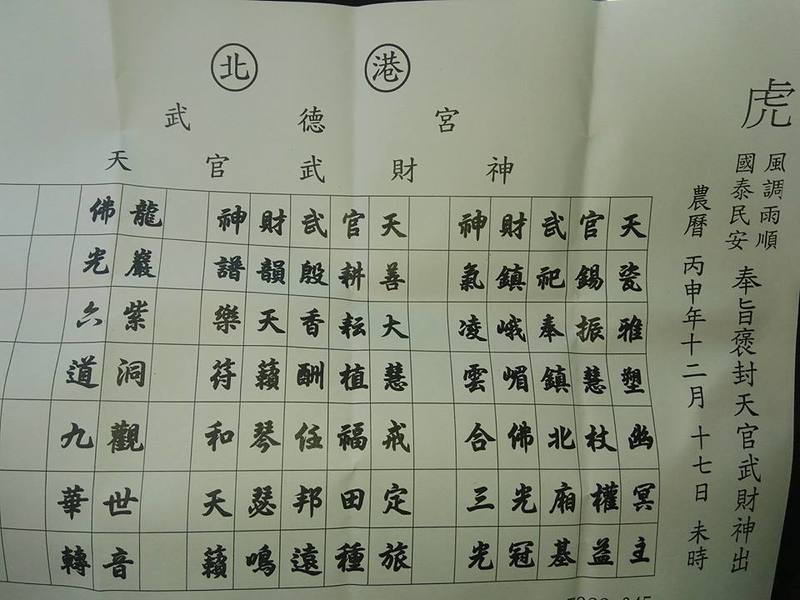 北港
武德宮
天官武財神
虎
風調雨順
國泰民安
奉旨褒封天官武財神出
農曆 丙申年十二月 十七日 未時
天瓷雅塑幽冥主
官錫振慧杖權益
武祀奉鎮北廂基
財鎮峨嵋佛光冠
神氣凌雲合三光
天善大慧戒定旅
官耕耘植福田種
武殷香酬任邦遠
財韻天籟琴瑟鳴
神譜樂符和天籟
龍巖紫洞觀世音
佛光六道九華轉